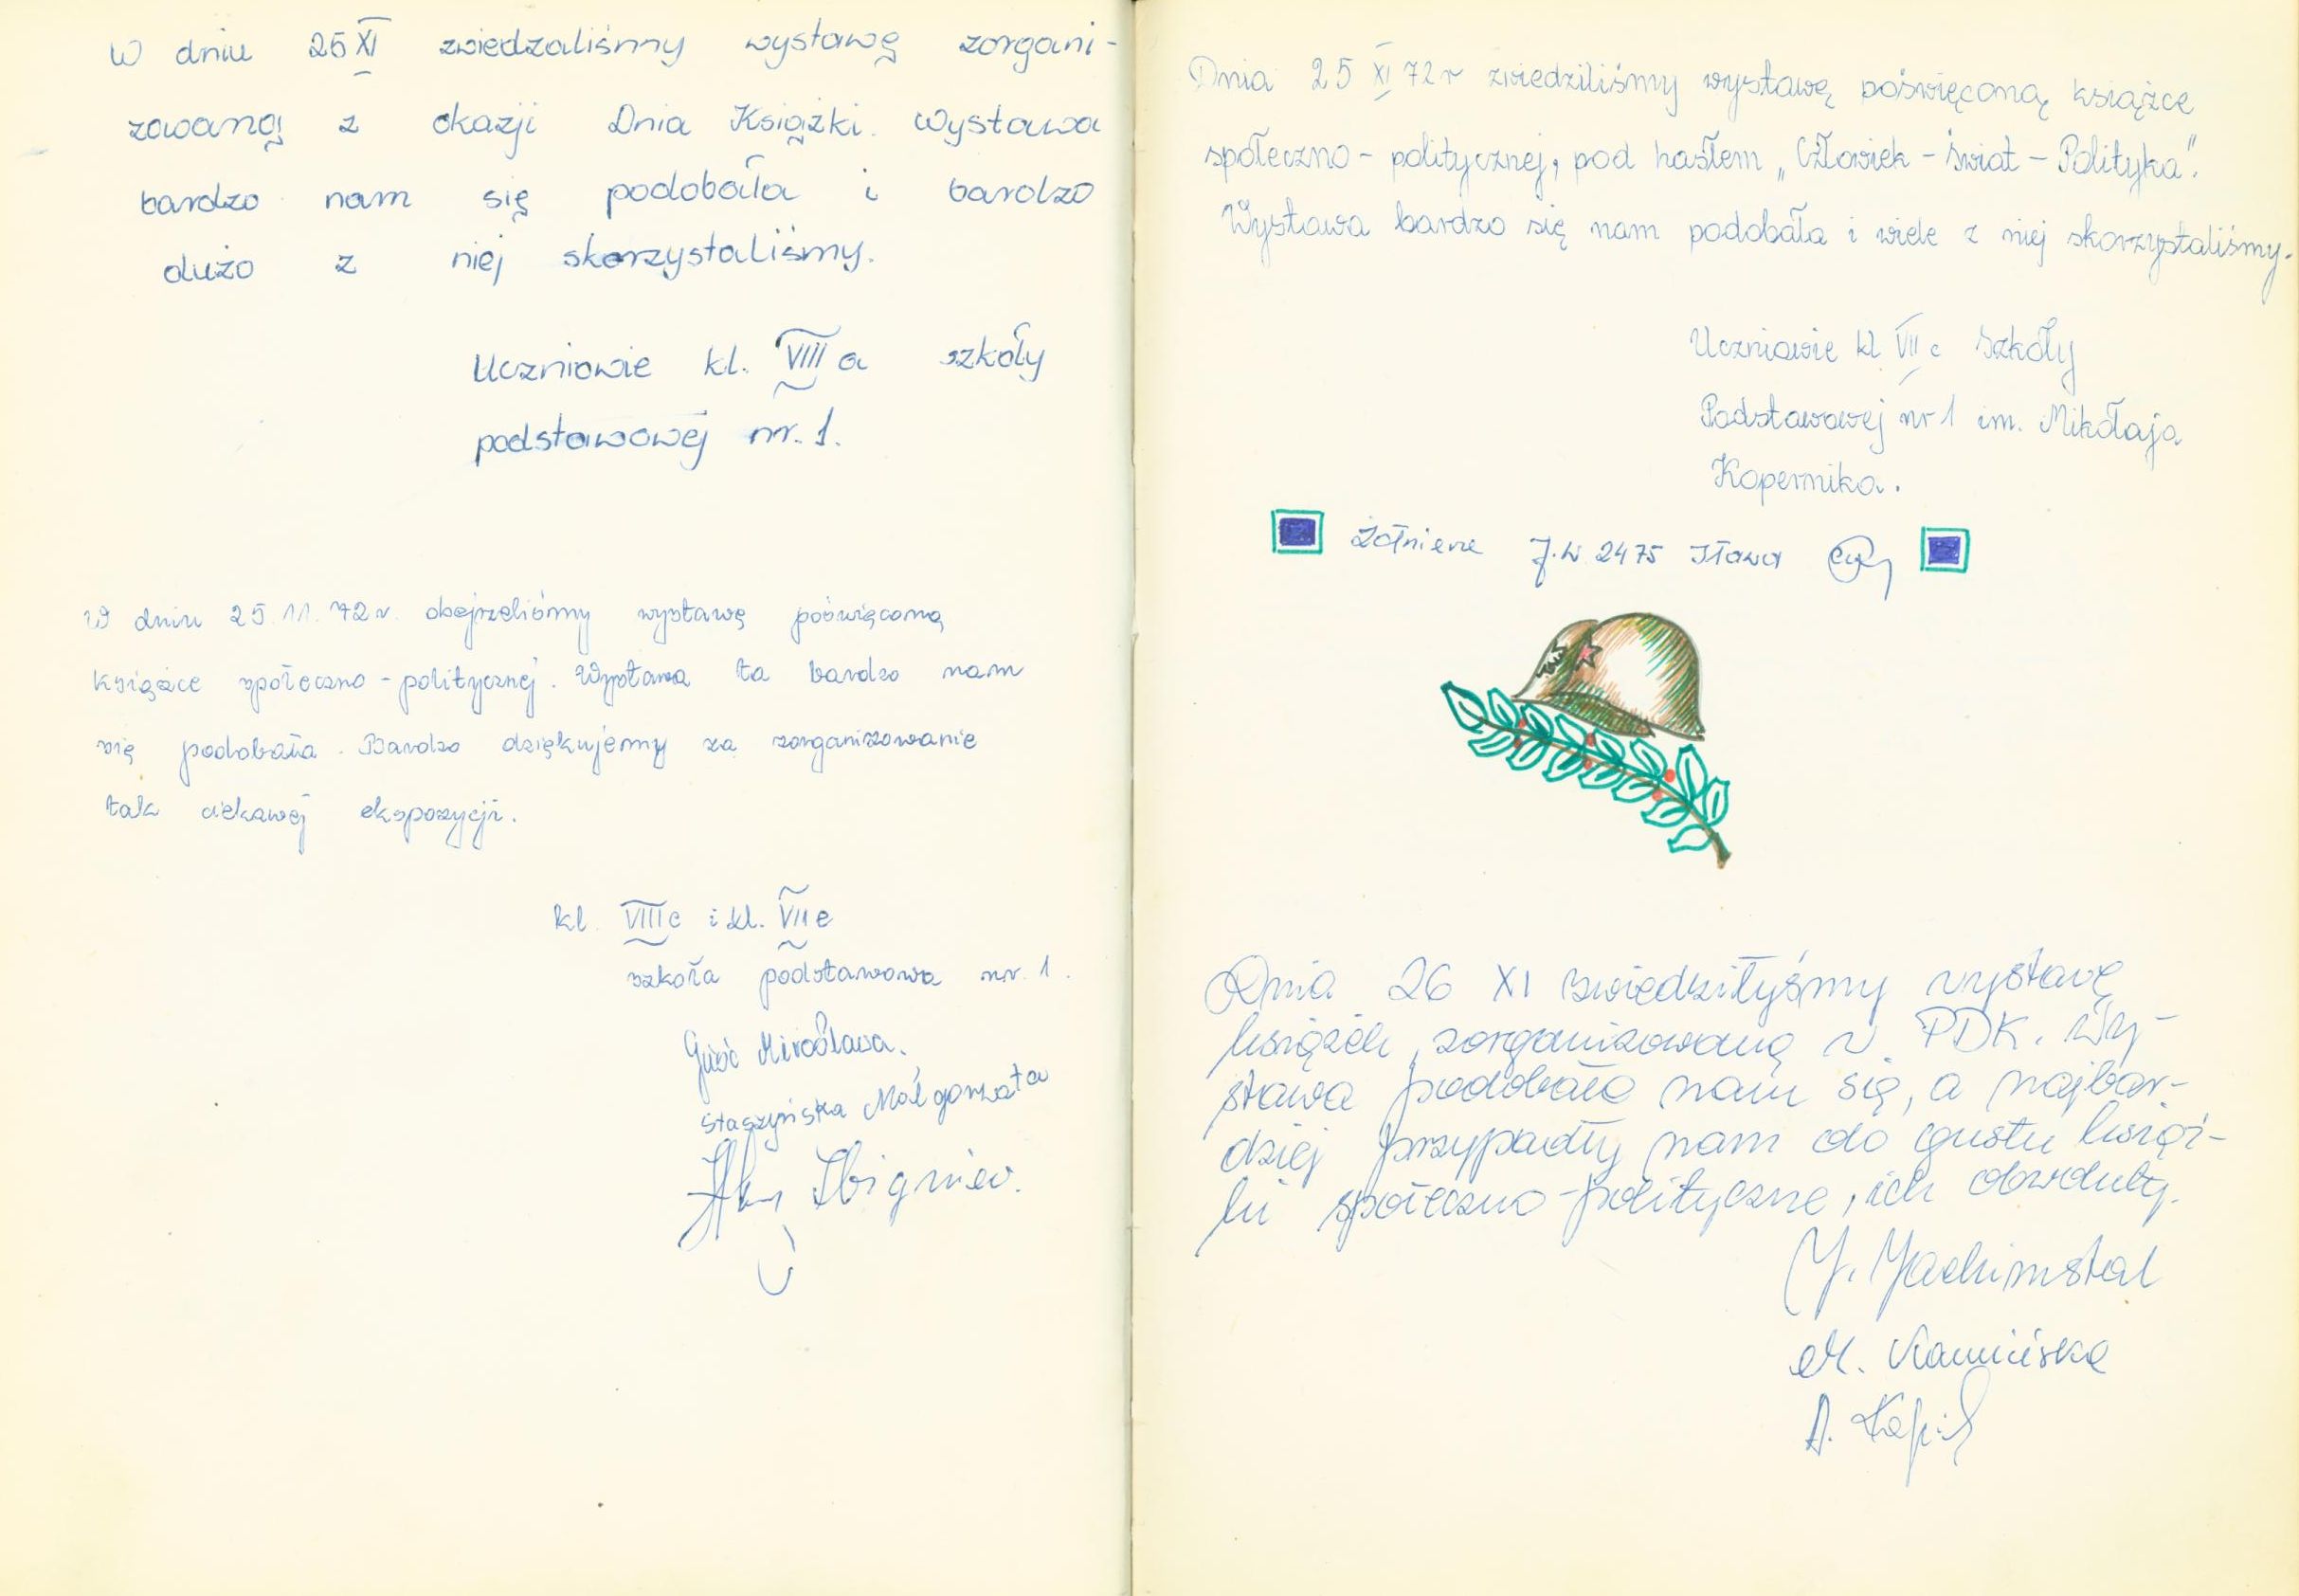 W dniu 25 XI zwiedzaliśmy wystawę zorgani-
zowaną z okazji Dnia Książki. Wystawa
bardzo nam się podobała i bardzo
dużo z niej skorzystaliśmy.
Uczniowie kl. VIII a szkoły
podstawowej nr. 1.
W dniu 25.11.72 r. obejrzeliśmy wystawę poświęconą
książce społeczno-politycznej. Wystawa ta bardzo nam
się podobała. Bardzo dziękujemy za zorganizowanie
tak ciekawej ekspozycji.
kl. VIII c i kl. VII e
szkoła podstawowa nr. 1.
Mirosława.
Staszyńska Małgorzata
Zbigniew.
Dnia 25 XI 72 r zwiedziliśmy wystawę poświęconą książce
społeczno-politycznej, pod hasłem „Człowiek - Świat - Polityka".
Wystawa bardzo się nam podobała i wiele z niej skorzystaliśmy.
Uczniowie kl VII c Szkoły
Podstawowej nr 1 im. Mikołaja
Kopernika.
Żołnierze J.W 2475 Iława
Dnia 26 XI zwiedziłyśmy wystawę
książek zorganizowaną w PDK. Wy-
stawa podobała nam się, a najbar-
dziej przypadły nam do gustu książ-
ki społeczno-polityczne, ich obwoluty.
J. Jachimstal
M. Kamińska
A.